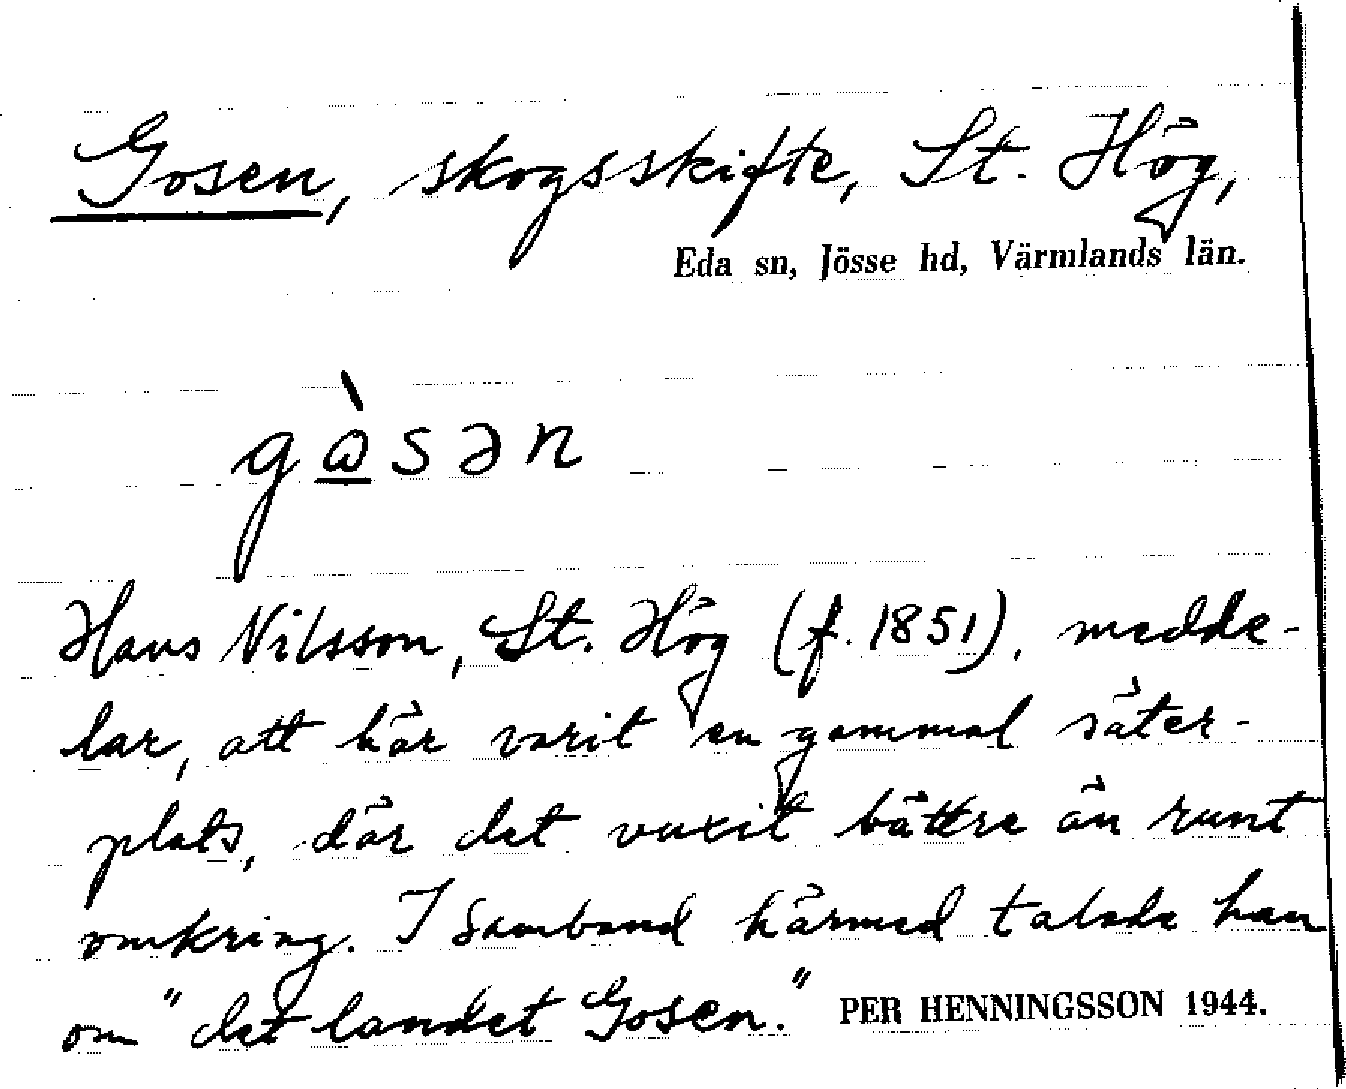 Gosen, skogsskifte, St. Hög,
Eda sn, Jösse hd, Värmlands län.
gὼsən
Hans Nilsson, St. Hög (f. 1851), medde-
lar, att här varit en gammal säter-
plats, där det vuxit bättre än runt
omkring. I samband härmed talade han
om "det landet Gosen."
PER HENNINGSSON 1944.